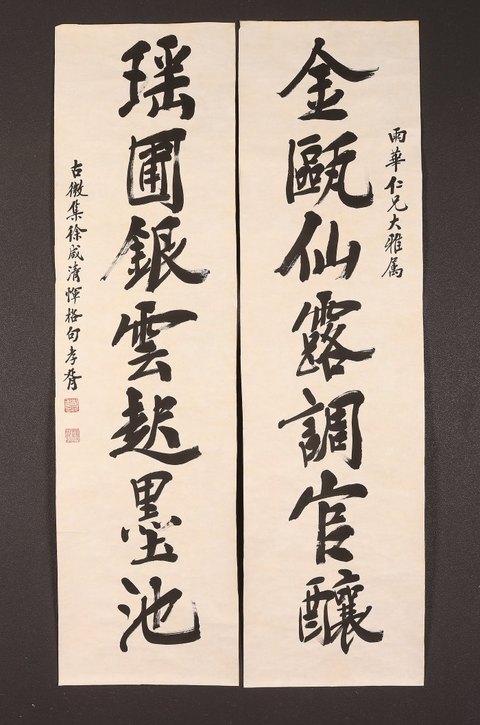 雨華仁兄大雅属
金甌仙露調官釀
瑶圃銀雲起墨池
古微集徐咸清惲格句孝胥